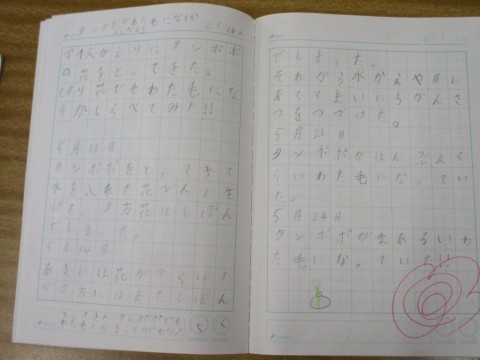 タンポポがわた毛になるか
学校かえりにタンポポ
の花をとってきた。
切り花でもわた毛にな
るかしらべてみた!!
5月13日
タンポポをとってきて
水を入れた花びんに生
けた。夕方花はしぼん
でしまった。
5月14日
あさには花がひらいて
夕方にはまたしぼん
でしまった。
それから水かえや日に
あててまいにちかんさ
つをつづけた。
5月21日
タンポポがはんぶんぐ
らいわた毛になってい
た。
5月24日
タンポポがまあるいわ
た毛になっていた!!